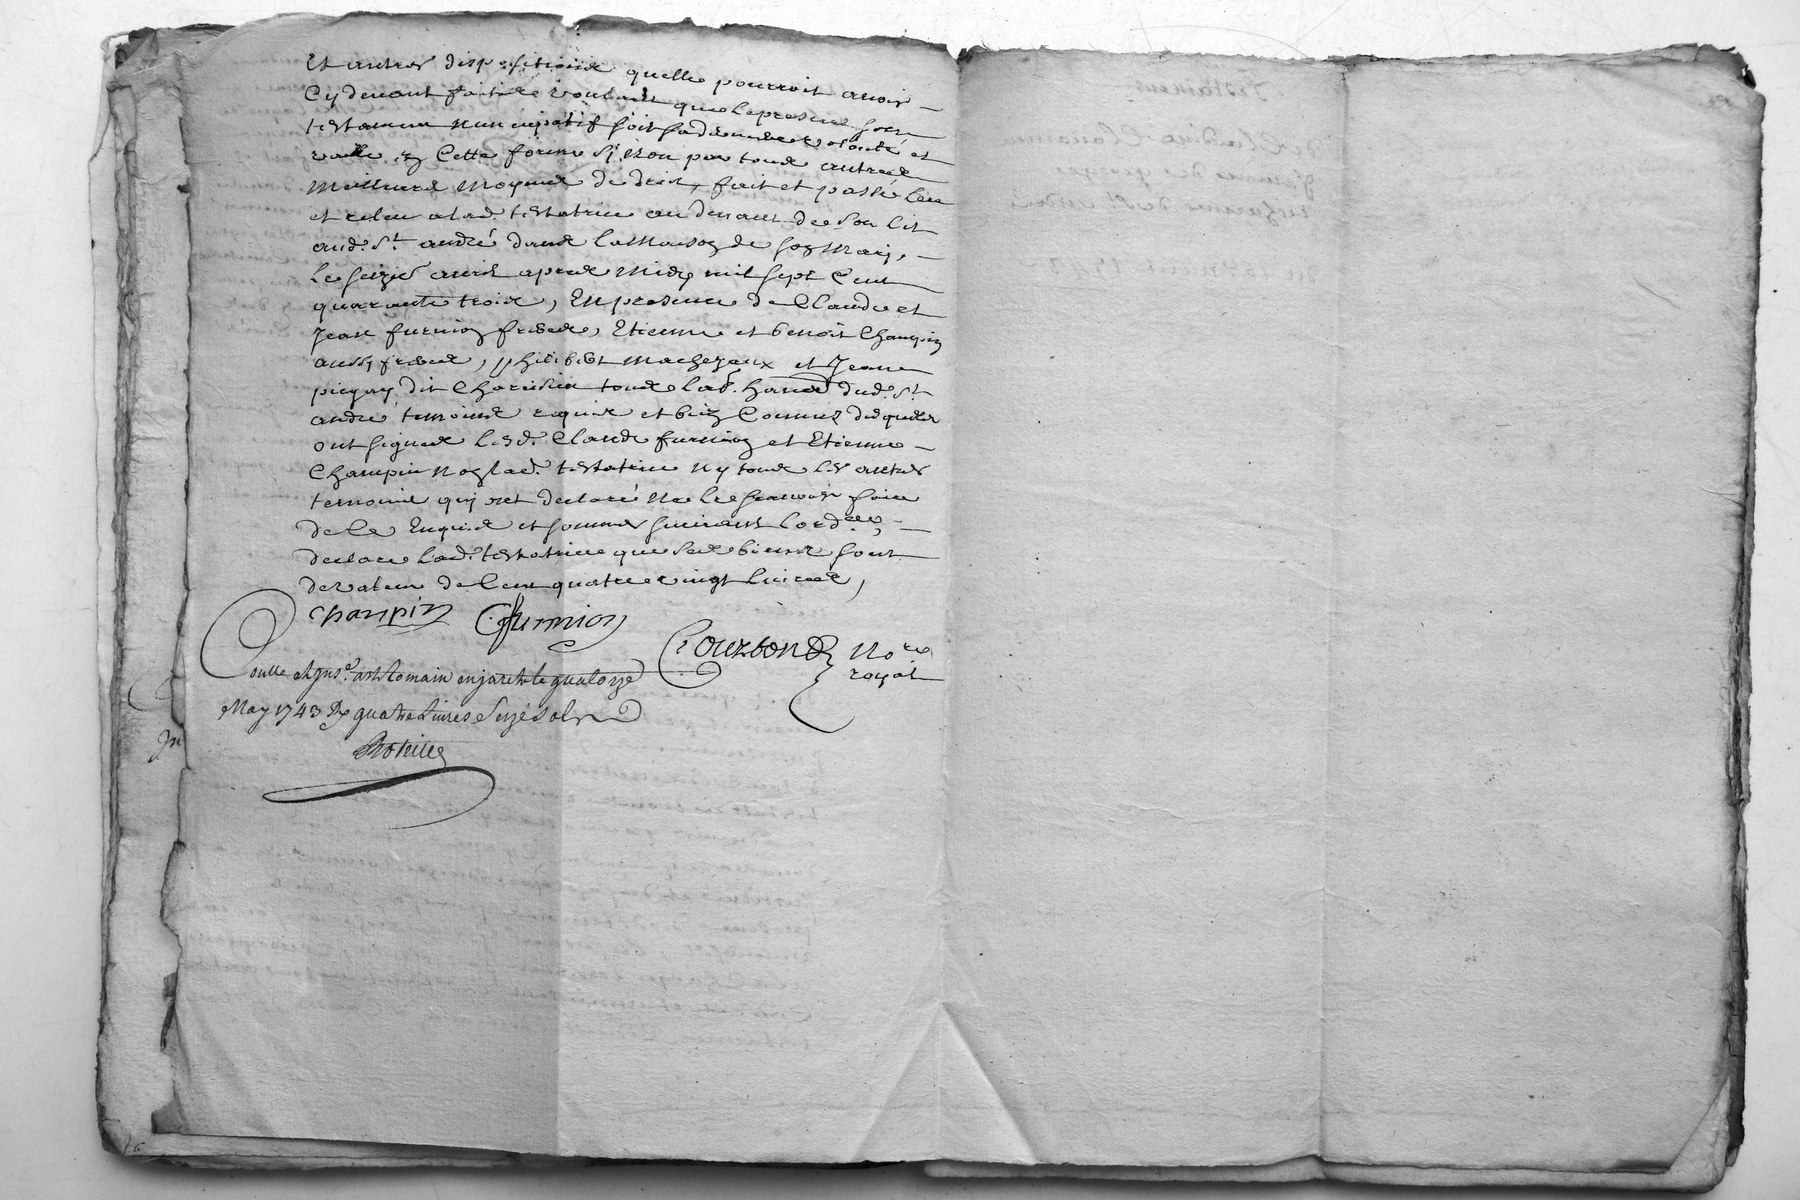 Et autres dispositions quelle pourroit avoir
Cy devant faitte voulant que le present son
testament nuncupatif soit sa derniere volonté et
vaille en Cette forme Sinon par tous autres
meilleurs moyens de droit, fait et passé leu
et releu a lad. testatrice au devant de Son lit
aud. St. andré dans la Maison de son Mary,
Le seize avril apres Midy mil sept Cent
quarante trois, En presence de Claude et
Jean furnion freres, Etienne et benoit Champin
aussy freres, philibert Machezaux et Jean
pigay dit tous lab. dud. St.
andré temoins requis et bien Connus desquels
ont signés lesd. Claude furnion et Etienne
Champin non lad. testatrice ny tous les autres
temoins qui ont declaré ne le scavoir faire
de ce Enquis et sommés suivant lord.ce
declare lad. testatrice que ses biens sont
de valeur de Cent quatre vingt livres,
Champin C furnion
Courbon No.re
royal
Conlle et Ins.é a st Romain en jarest le quatorze
May 1743 R quatre Livres Seize sols